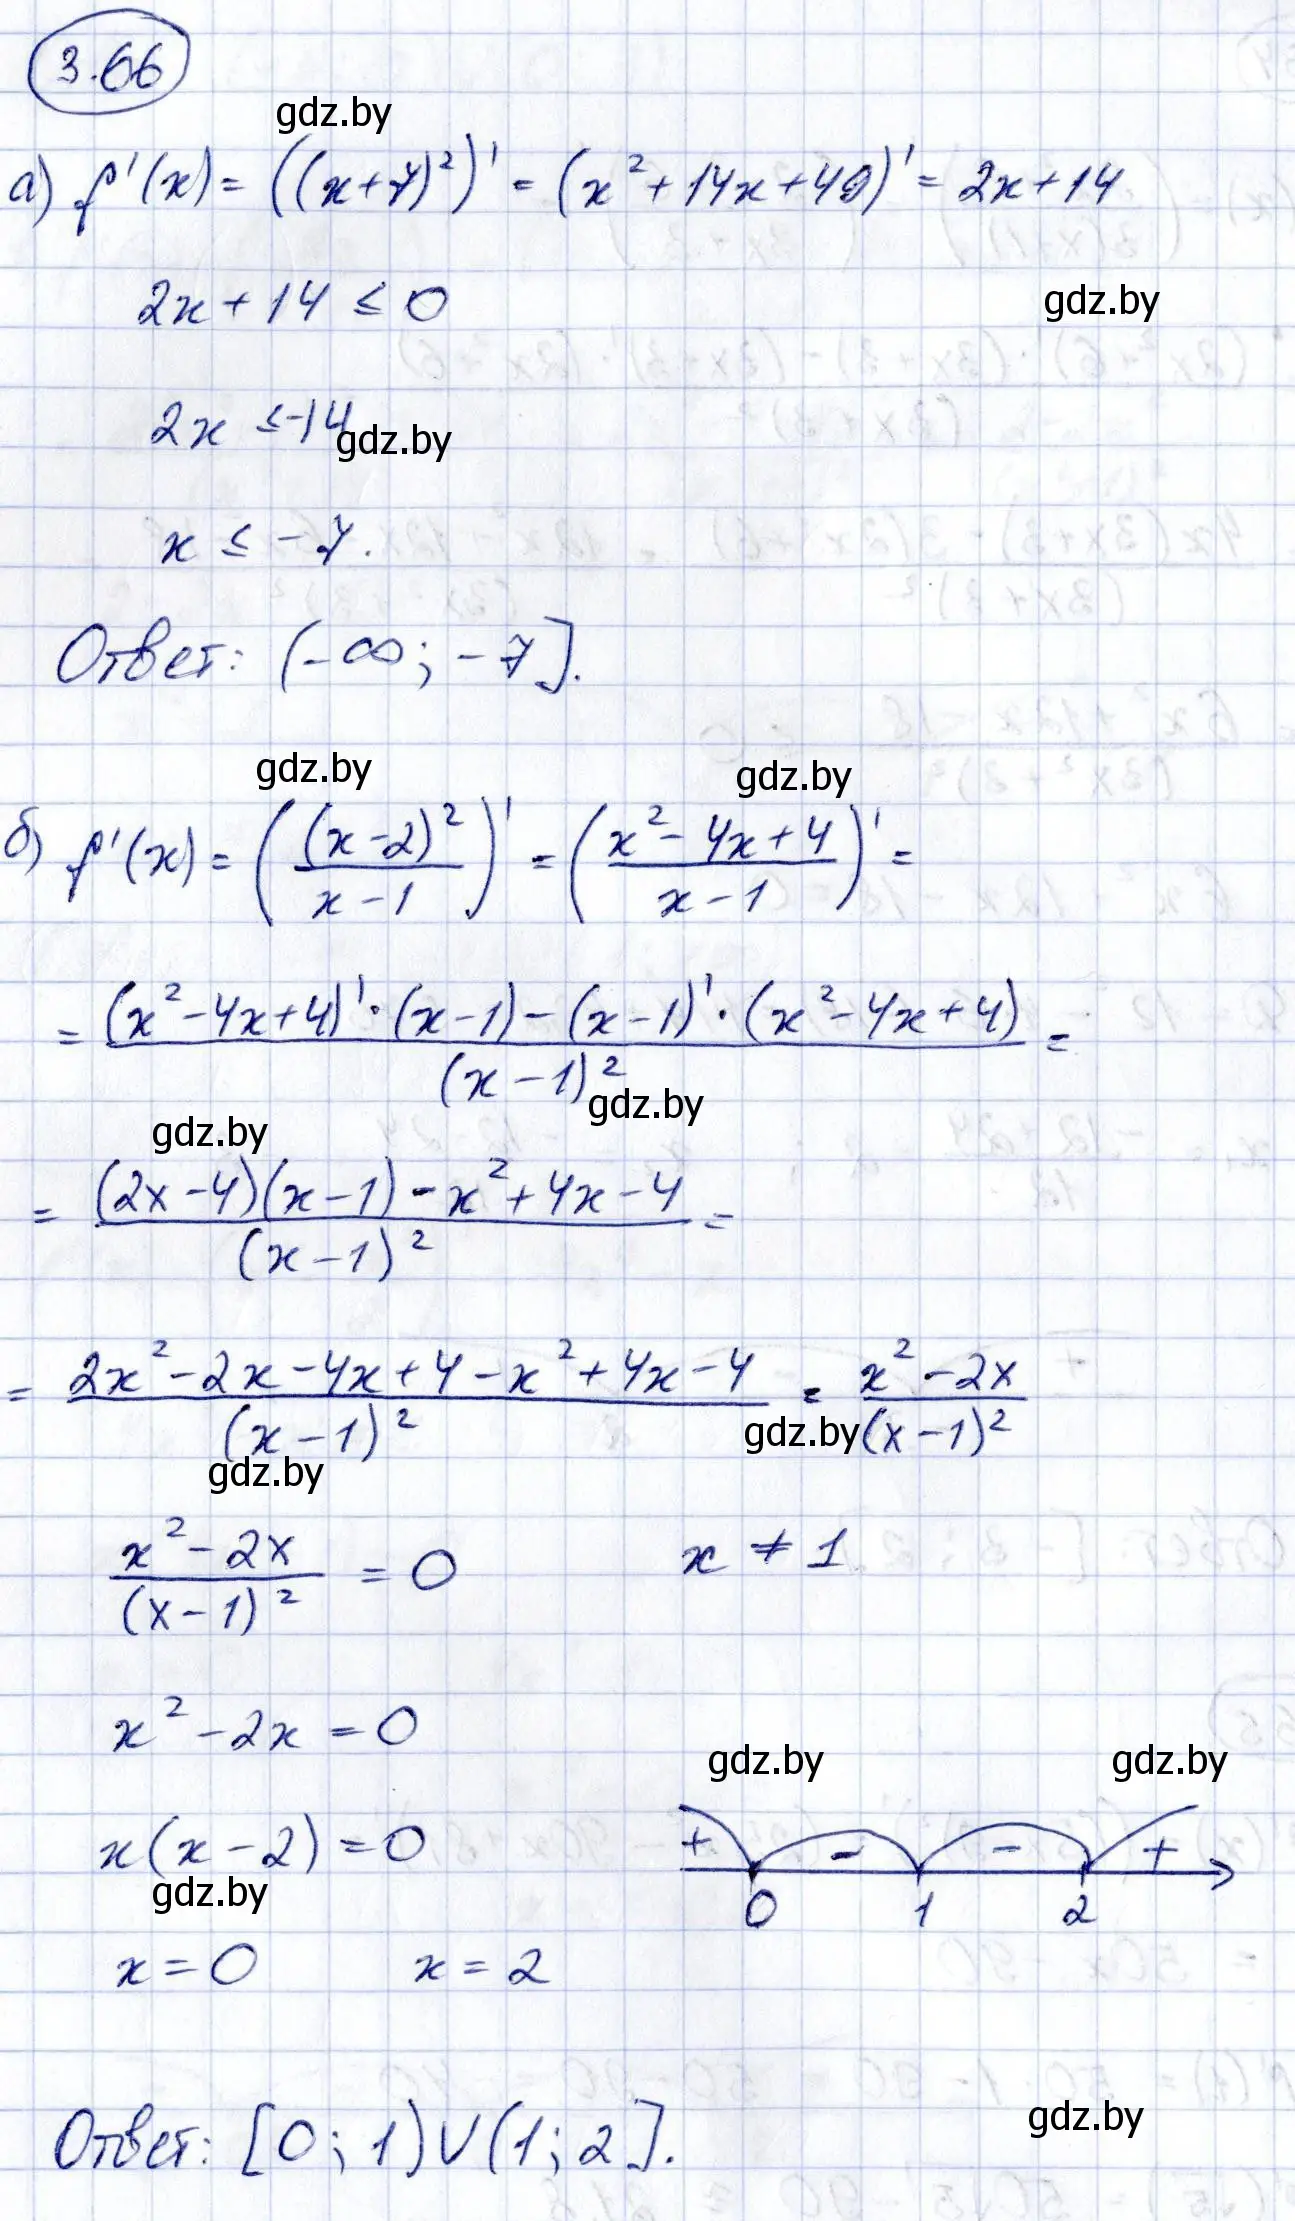 3.66
gdz.by
а) f'(x) = ((x+7)²)' = (x²+14x+49)' = 2x+14
2x+14 ≤ 0
gdz.by
2x ≤ -14
gdz.by
x ≤ -7.
Ответ: (-∞; -7].
gdz.by gdz.by
б) f'(x) = ((x-2)²/(x-1))' = ((x²-4x+4)/(x-1))' =
= ((x²-4x+4)'·(x-1)-(x-1)'·(x²-4x+4))/(x-1)² =
gdz.by
gdz.by
= ((2x-4)(x-1)-x²+4x-4)/(x-1)² =
= (2x²-2x-4x+4-x²+4x-4)/(x-1)² = (x²-2x)/(x-1)²
gdz.by
gdz.by
(x²-2x)/(x-1)² = 0 x ≠ 1
x²-2x = 0
gdz.by gdz.by
x(x-2) = 0
+ - - +
gdz.by
0 1 2
x = 0 x = 2
gdz.by
Ответ: [0; 1)∪(1; 2].